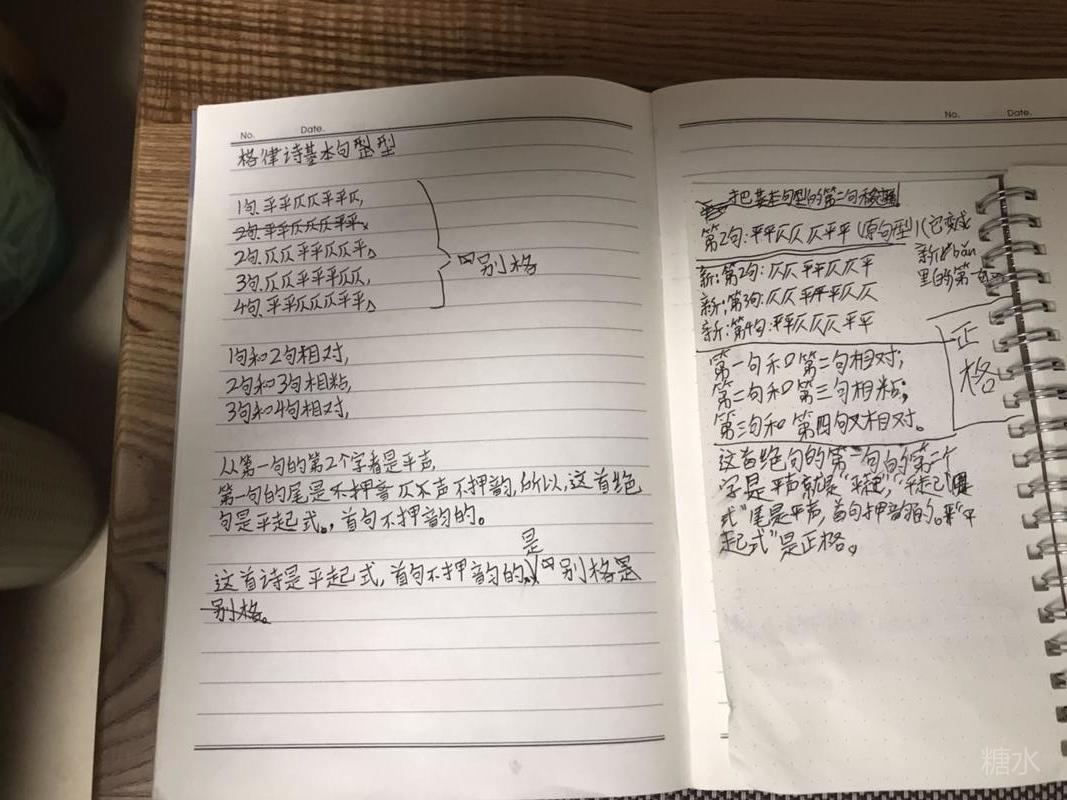 No. Date.
格律诗基本句型
1句.平平仄仄平平仄,
2句.平平仄仄仄平平,
2句.仄仄平平仄仄平。
3句.仄仄平平平仄仄,
4句.平平仄仄仄平平。
别格
1句和2句相对,
2句和3句相粘,
3句和4句相对,
从第一句的第2个字看是平声,
第一句的尾是仄声不押韵,所以,这首绝
句是平起式。首句不押韵的。
是
这首诗是平起式,首句不押韵的,别格是
别格。
No. Date.
把基本句型的第二句移到
第2句:平平仄仄仄平平(原句型)(它变成
新bǎn
里的第一句
新:第2句:仄仄平平仄仄平
新:第3句:仄仄平平平仄仄
新:第4句:平平仄仄仄平平
正格
第一句和第二句相对;
第二句和第三句相粘;
第三句和第四句又相对。
这首绝句的第一句的第二个
字是平声就是"平起","平起
式"尾是平声,首句押韵的。"平
起式"是正格。
糖水